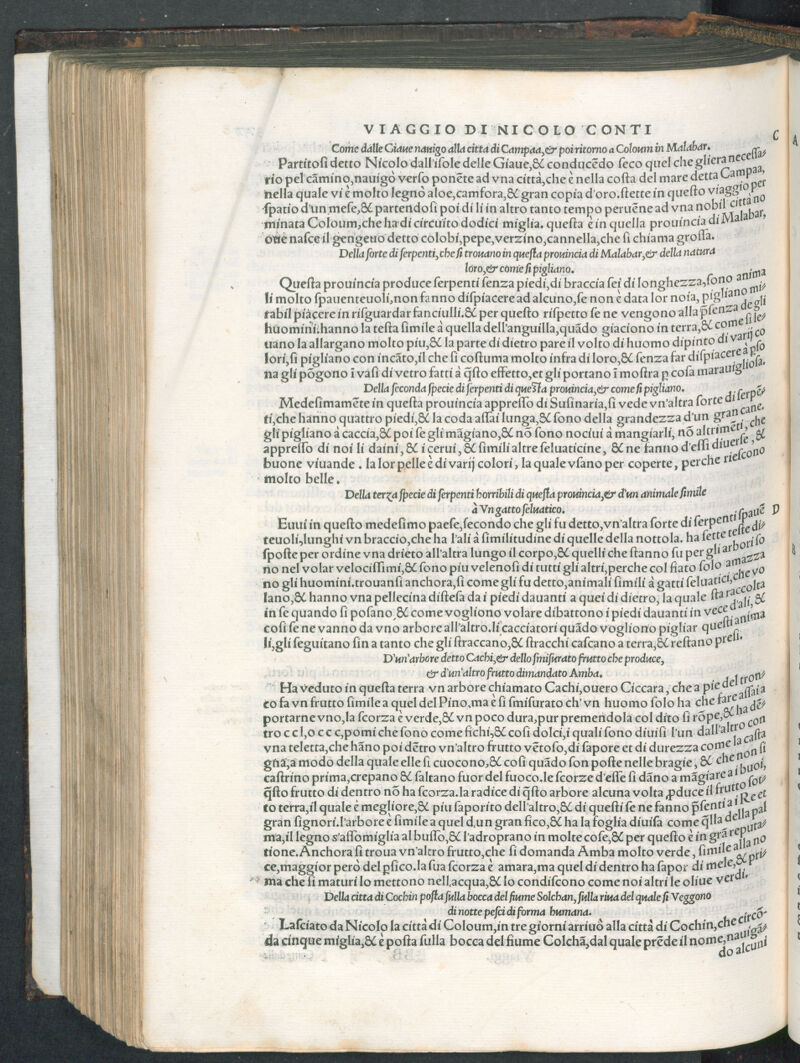 VIAGGIO DI NICOLO CONTI
C
Come dalle Giaue nauigo alla citta di Campaa,& poi ritorno a Coloum in Malabar.
Partitosi detto Nicolo dall'isole delle Giaue,& conducẽdo seco quel che gliera necessa-
rio pel cãmino,nauigò verso ponẽte ad vna città,che è nella costa del mare detta Campaa,
nella quale vi è molto legnò aloe,camfora,& gran copia d'oro.stette in questo viaggio per
spatio d'un mese,& partendosi poi di li in altro tanto tempo peruẽne ad vna nobil città no
minata Coloum,che ha di circuito dodici miglia. questa è in quella prouincia di Malabar,
oue nasce il gengeuo detto colobi,pepe,verzino,cannella,che si chiama grossa.
Della sorte di serpenti,che si trouano in questa prouincia di Malabar,& della natura
loro,& come si pigliano.
Questa prouincia produce serpenti senza piedi,di braccia sei di longhezza,sono anima
li molto spauenteuoli,non fanno dispiacere ad alcuno,se non è data lor noia, pigliano mi-
rabil piacere in risguardar fanciulli.& per questo rispetto se ne vengono alla p̃senza de gli
huomini:hanno la testa simile à quella dell'anguilla,quãdo giaciono in terra,& come si le-
uano la allargano molto piu,& la parte di dietro pare il volto di huomo dipinto di varij co
lori,si pigliano con incãto,il che si costuma molto infra di loro,& senza far dispiacere à pso
na gli põgono ĩ vasi di vetro fatti à q̃sto effetto,et gli portano ĩ mostra p cosa marauigliosa.
Della seconda specie di serpenti di questa prouincia,& come si pigliano.
Medesimamẽte in questa prouincia appresso di Susinaria,si vede vn'altra sorte di serpẽ-
ti,che hanno quattro piedi,& la coda assai lunga,& sono della grandezza d'un gran cane.
gli pigliano à caccia,& poi se gli mãgiano,& nõ sono nociui à mangiarli, nõ altrimẽti, che
appresso di noi li daini, & i cerui, & simili altre seluaticine, & ne fanno d'essi diuerse, &
buone viuande . la lor pelle è di varij colori, la quale vsano per coperte, perche riescono
molto belle.
Della terza specie di serpenti horribili di questa prouincia,& d'un animale simile
à Vn gatto seluatico.
D
Euui in questo medesimo paese,secondo che gli fu detto,vn'altra sorte di serpenti spauẽ
teuoli,lunghi vn braccio,che ha l'ali à similitudine di quelle della nottola. ha sette teste di-
sposte per ordine vna drieto all'altra lungo il corpo,& quelli che stanno su per gli arbori so
no nel volar velocissimi,& sono piu velenosi di tutti gli altri,perche col fiato solo amazza
no gli huomini.trouansi anchora,si come gli fu detto,animali simili à gatti seluatici,che vo
lano,& hanno vna pellecina distesa da i piedi dauanti a quei di dietro, la quale sta raccolta
in se quando si posano,& come vogliono volare dibattono i piedi dauanti in vece d'ali, &
cosi se ne vanno da vno arbore all'altro.li cacciatori quãdo vogliono pigliar questi anima
li,gli seguitano fin a tanto che gli straccano,& stracchi cascano a terra,& restano presi.
D'un'arbore detto Cachi,& dello smisurato frutto che produce,
& d'un'altro frutto dimandato Amba.
Ha veduto in questa terra vn arbore chiamato Cachi,ouero Ciccara, che a pie del tron-
co fa vn frutto simile a quel del Pino,ma è si smisurato ch' vn huomo solo ha che fare assai a
portarne vno,la scorza è verde,& vn poco dura,pur premendola col dito si rõpe,& ha dẽ-
tro c c l,o c c c,pomi che sono come fichi,& cosi dolci,i quali sono diuisi l'un dall'altro con
vna teletta,che hãno poi dẽtro vn'altro frutto vẽtoso,di sapore et di durezza come la casta
gna,a modo della quale elle si cuocono,& cosi quãdo son poste nelle bragie, & che non si
castrino prima,crepano & saltano fuor del fuoco.le scorze d'esse si dãno a mãgiare a i buoi,
q̃sto frutto di dentro nõ ha scorza.la radice di q̃sto arbore alcuna volta ,pduce il frutto sot-
to terra,il quale è megliore,& piu saporito dell'altro,& di questi se ne fanno p̃senti a i Re et
gran signori.l'arbore è simile a quel d,un gran fico,& ha la foglia diuisa come q̃lla della pal
ma,il legno s'assomiglia al busso,& l'adroprano in molte cose,& per questo è in grã reputa-
tione.Anchora si troua vn'altro frutto,che si domanda Amba molto verde, simile alla no
ce,maggior però del psico.la sua scorza è amara,ma quel di dentro ha sapor di mele,& pri-
ma che si maturi lo mettono nell,acqua,& lo condiscono come noi altri le oliue verdi.
Della citta di Cochin posta sulla bocca del fiume Solchan, sulla riua del quale si Veggono
di notte pesci di forma humana.
Lasciato da Nicolo la città di Coloum,in tre giorni arriuò alla città di Cochin,che circõ-
da cinque miglia,& è posta sulla bocca del fiume Colchã,dal quale prẽde il nome,nauigã-
do alcuni